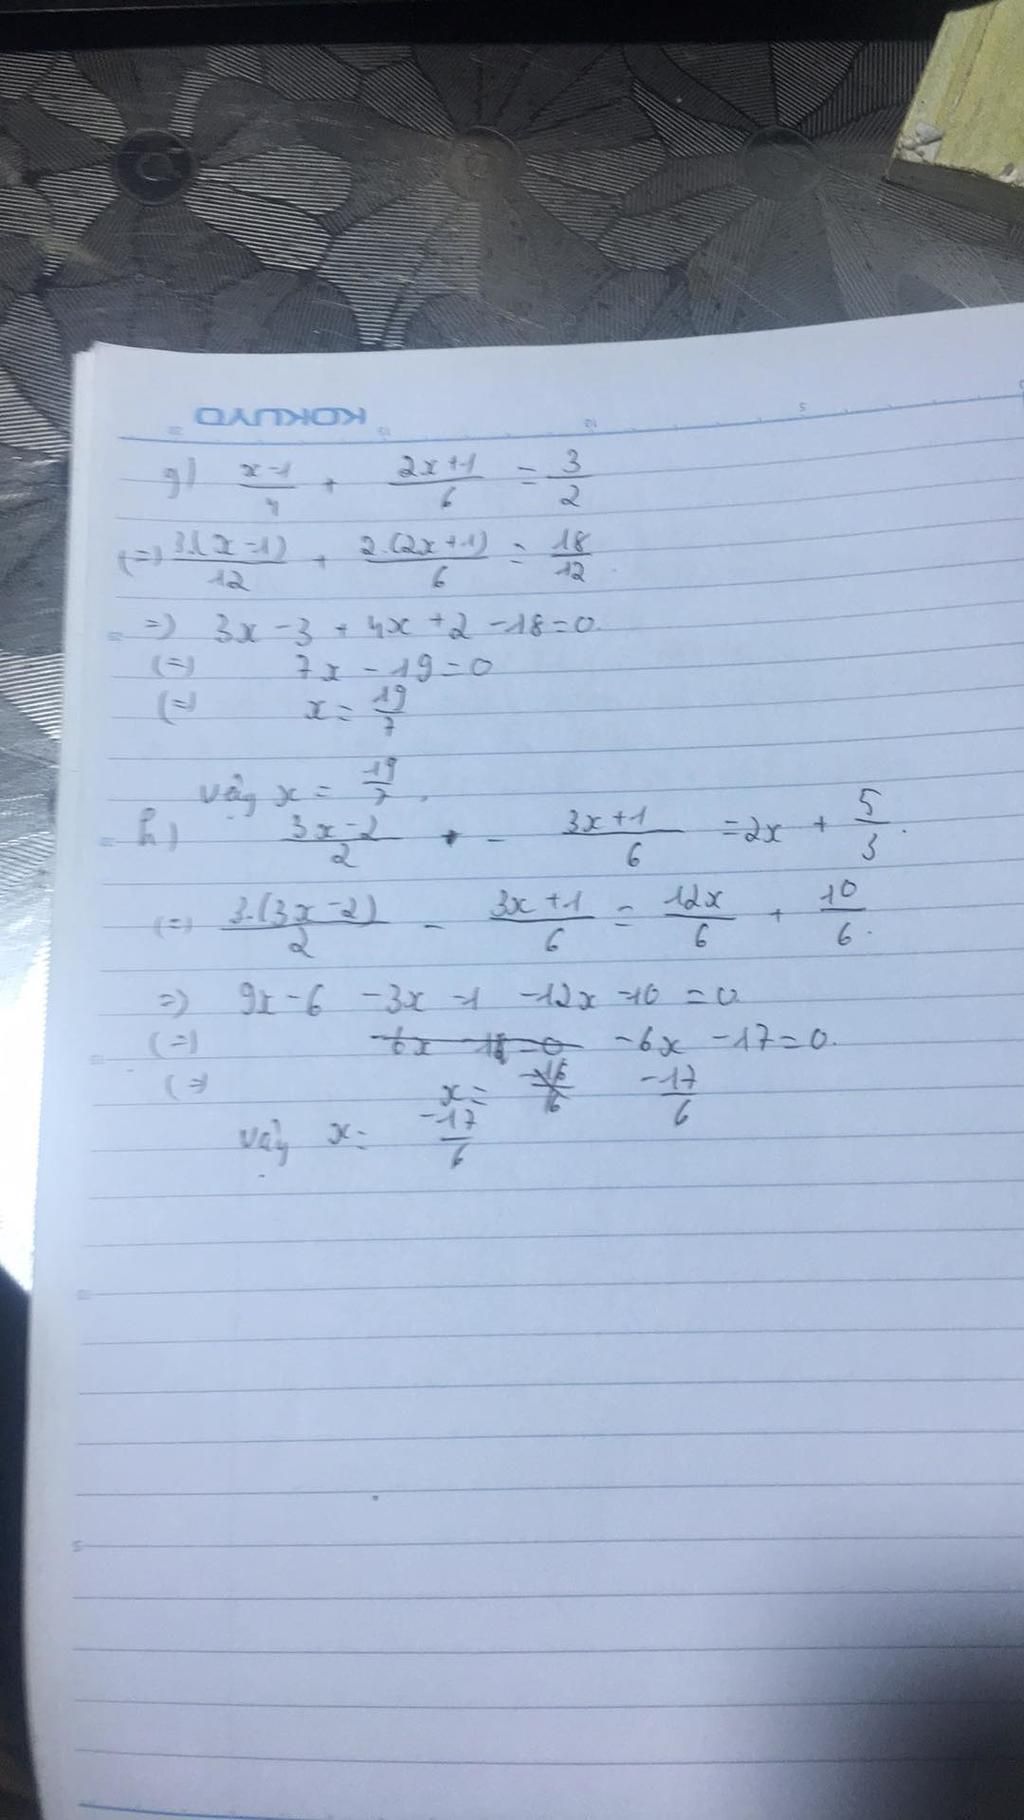 KOKUYO
g) \frac{x-1}{4} + \frac{2x+1}{6} = \frac{3}{2}
(=) \frac{3.(x-1)}{12} + \frac{2.(2x+1)}{6} = \frac{18}{12}.
=) 3x - 3 + 4x + 2 - 18 = 0.
(=) 7x - 19 = 0
(=) x = \frac{19}{7}
vậy x = \frac{19}{7}.
h) \frac{3x-2}{2} - \frac{3x+1}{6} = 2x + \frac{5}{3}.
(=) \frac{3.(3x-2)}{2} - \frac{3x+1}{6} = \frac{12x}{6} + \frac{10}{6}.
=) 9x - 6 - 3x - 1 - 12x - 10 = 0
(=) -6x - 17 = 0.
(=) x = \frac{-17}{6}
vậy x = \frac{-17}{6}